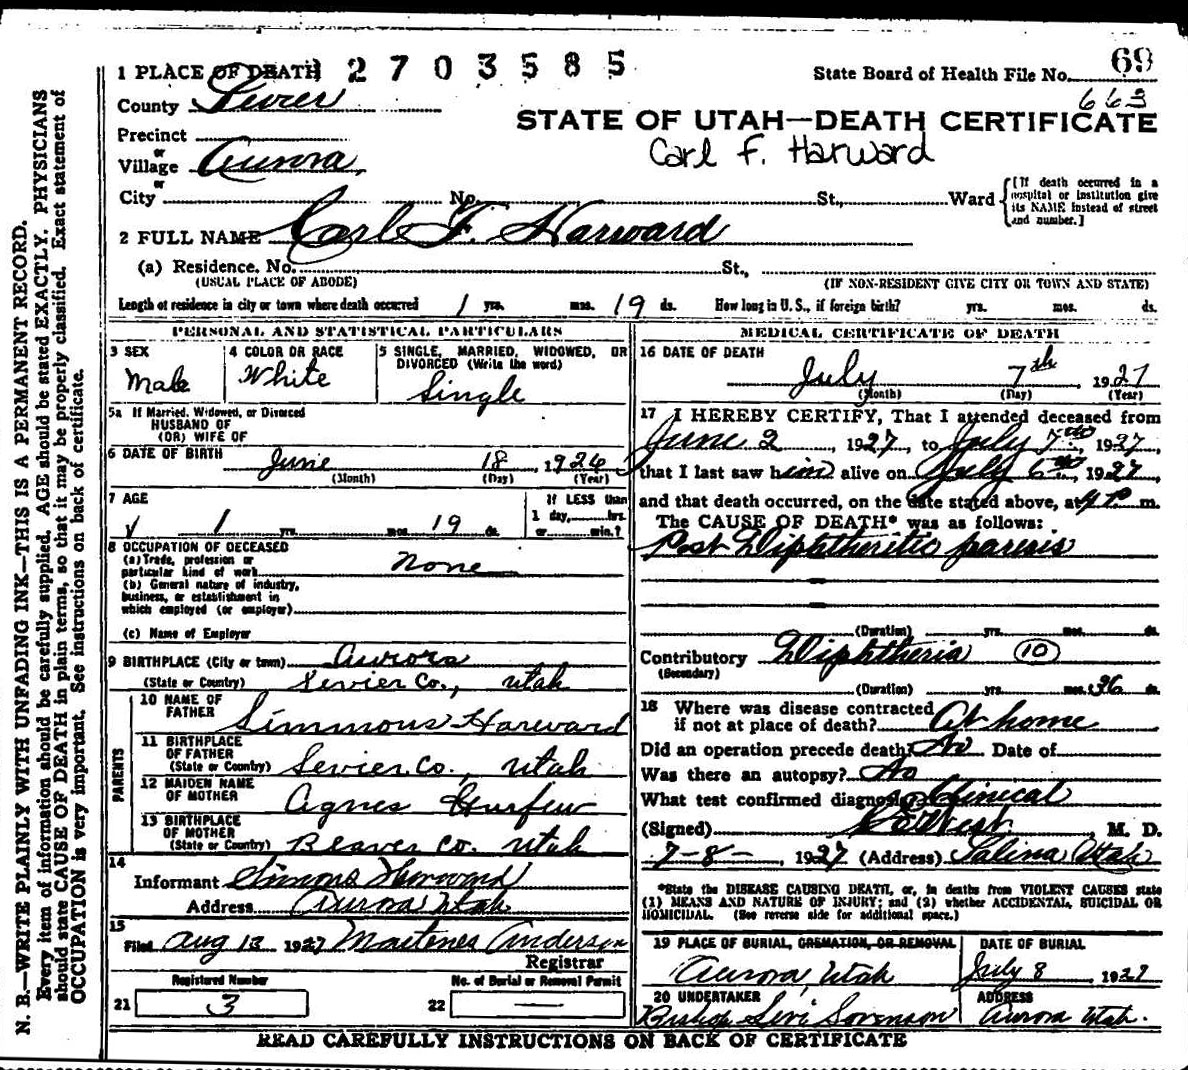 2703585
1 PLACE OF DEATH
State Board of Health File No. 69
663
County Sevier
STATE OF UTAH—DEATH CERTIFICATE
Carl F. Harward
Precinct
or
Village Aurora,
or
City No. St., Ward
[If death occurred in a hospital or institution give its NAME instead of street and number.]
2 FULL NAME Carl F. Harward
(a) Residence. No. St.,
(USUAL PLACE OF ABODE) (IF NON-RESIDENT GIVE CITY OR TOWN AND STATE)
Length of residence in city or town where death occurred 1 yrs. mos. 19 ds. How long in U. S., if foreign birth? yrs. mos. ds.
PERSONAL AND STATISTICAL PARTICULARS
3 SEX
Male
4 COLOR OR RACE
White
5 SINGLE, MARRIED, WIDOWED, OR DIVORCED (Write the word)
Single
5a If Married, Widowed, or Divorced
HUSBAND OF
(OR) WIFE OF
6 DATE OF BIRTH June 18, 1926
(Month) (Day) (Year)
7 AGE
1 yrs. mos. 19 ds.
If LESS than
1 day, hrs.
or min.?
8 OCCUPATION OF DECEASED
(a) Trade, profession or
particular kind of work None
(b) General nature of industry,
business, or establishment in
which employed (or employer)
(c) Name of Employer
9 BIRTHPLACE (City or town) Aurora
(State or Country) Sevier Co., Utah
PARENTS
10 NAME OF
FATHER Simmons Harward
11 BIRTHPLACE
OF FATHER
(State or Country) Sevier Co., Utah
12 MAIDEN NAME
OF MOTHER Agnes
13 BIRTHPLACE
OF MOTHER
(State or Country) Beaver Co. Utah
14
Informant Simons Harward
Address Aurora Utah
15
Filed Aug 13 1927 Anderson
Registrar
Registered Number
21 3
No. of Burial or Removal Permit
22 —
MEDICAL CERTIFICATE OF DEATH
16 DATE OF DEATH
July 7th, 1927
(Month) (Day) (Year)
17 I HEREBY CERTIFY, That I attended deceased from
June 2, 1927, to July 7, 1927,
that I last saw him alive on July 6, 1927,
and that death occurred, on the date stated above, at m.
The CAUSE OF DEATH* was as follows:
Post Diphtheritic paresis
(Duration) yrs. mos. ds.
Contributory Diphtheria 10
(Secondary)
(Duration) yrs. mos. 36 ds.
18 Where was disease contracted
if not at place of death? At home
Did an operation precede death? No Date of
Was there an autopsy? No
What test confirmed diagnosis? Clinical
(Signed) West, M. D.
7-8-, 1927 (Address) Salina Utah
*State the DISEASE CAUSING DEATH, or, in deaths from VIOLENT CAUSES state
(1) MEANS AND NATURE OF INJURY; and (2) whether ACCIDENTAL, SUICIDAL OR
HOMICIDAL. (See reverse side for additional space.)
19 PLACE OF BURIAL, CREMATION, OR REMOVAL
Aurora, Utah
DATE OF BURIAL
July 8, 1927
20 UNDERTAKER
Bishop Levi Sorenson
ADDRESS
Aurora Utah.
READ CAREFULLY INSTRUCTIONS ON BACK OF CERTIFICATE
N. B.—WRITE PLAINLY WITH UNFADING INK—THIS IS A PERMANENT RECORD.
Every item of information should be carefully supplied. AGE should be stated EXACTLY. PHYSICIANS
should state CAUSE OF DEATH in plain terms, so that it may be properly classified. Exact statement of
OCCUPATION is very important. See instructions on back of certificate.